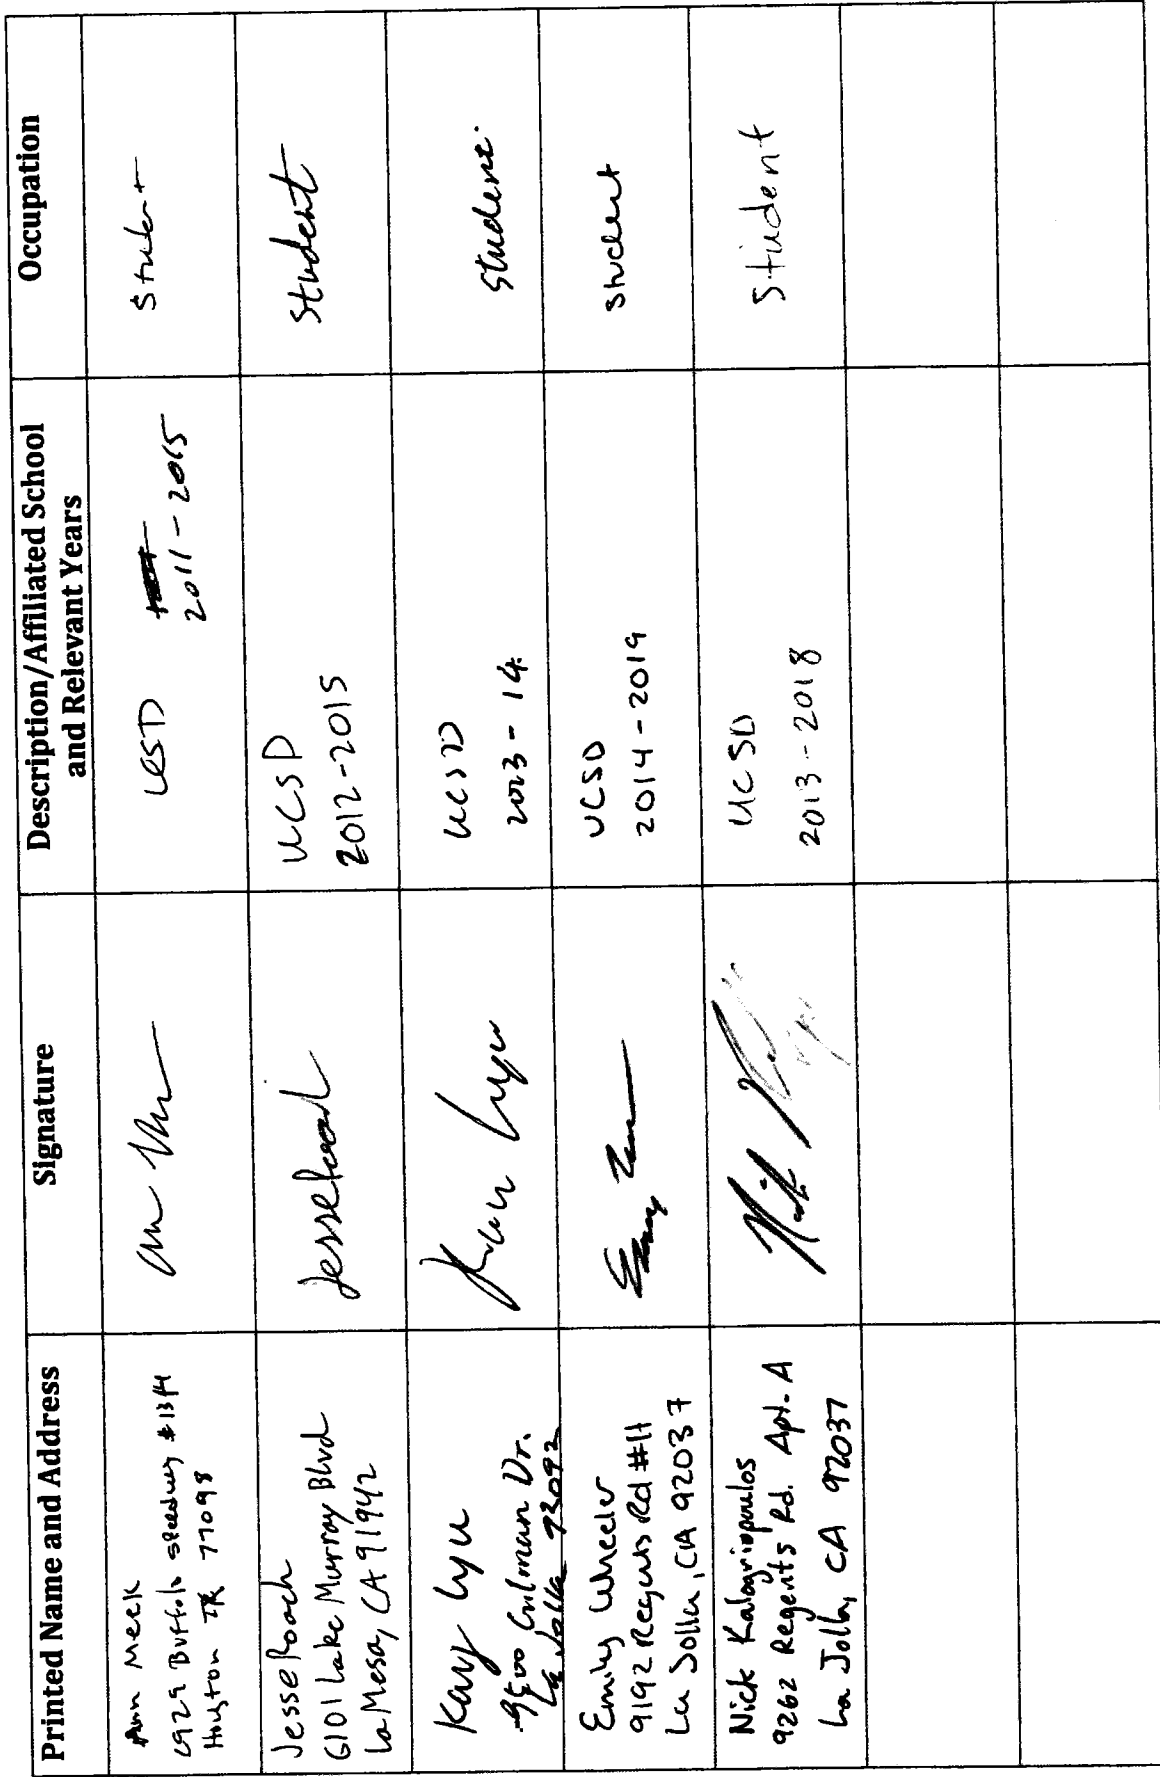 Printed Name and Address
Signature
Description/Affiliated School
and Relevant Years
Occupation
Ann Meek
2929 Buffalo Speedway #1314
Houston TX 77098
UCSD
2011-2015
Student
Jesse Roach
6101 Lake Murray Blvd
La Mesa, CA 91942
Jesse Roach
UCSD
2012-2015
Student
Kay Lyu
9500 Gilman Dr.
La Jolla 92092
Lyu
UCSD
2013-14.
Student.
Emily Wheeler
9192 Regents Rd #H
La Jolla, CA 92037
UCSD
2014-2019
Student
Nick Kalogriopoulos
9262 Regents Rd. Apt. A
La Jolla, CA 92037
Nick
UCSD
2013-2018
Student